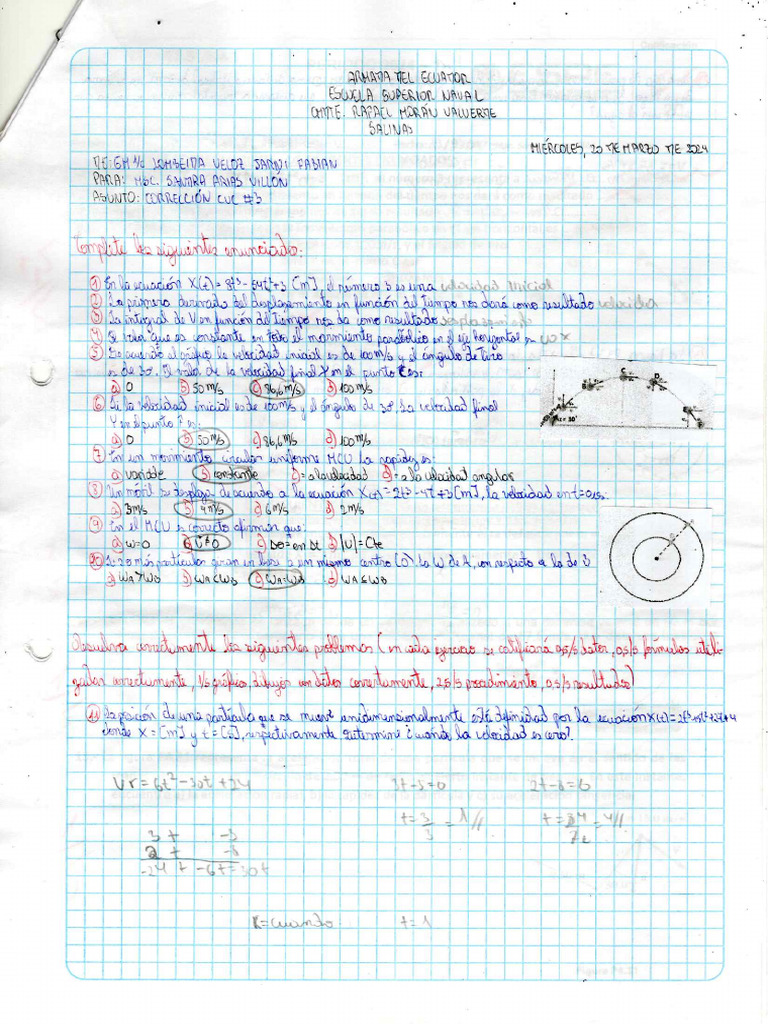 ARMADA DEL ECUADOR
ESCUELA SUPERIOR NAVAL
CMTE. RAFAEL MORÁN VALVERDE
SALINAS
MIÉRCOLES, 20 DE MARZO DE 2024
DE: GM 1/C LOMBEIDA VELOZ JARNI FABIAN
PARA: MSC. SANDRA ARIAS VILLÓN
ASUNTO: CORRECCIÓN CUC #3
Complete los siguientes enunciados:
① En la ecuación X(t) = 8t³ - 54t² + 3 [m], el número 3 es una velocidad inicial
② La primera derivada del desplazamiento en función del tiempo nos dará como resultado velocidad
③ La integral de V en función del tiempo nos da como resultado desplazamiento
④ El valor que es constante en todo el movimiento parabólico en el eje horizontal es
⑤ De acuerdo al gráfico la velocidad inicial es de 100 m/s y el ángulo de tiro
es de 30°. El valor de la velocidad final Y en el punto C es:
a) 0 b) 50 m/s c) 86,6 m/s d) 100 m/s
⑥ Si la velocidad inicial es de 100 m/s y el ángulo de 30° la velocidad final
Y en el punto es:
a) 0 b) 50 m/s c) 86,6 m/s d) 100 m/s
⑦ En un movimiento circular uniforme MCU la rapidez es:
a) variable b) constante c) = a la velocidad d) = a la velocidad angular
⑧ Un móvil se desplaza de acuerdo a la ecuación X(t) = 2t² - 4t + 3 [m], la velocidad en t=0s es:
a) 3 m/s b) 4 m/s c) 6 m/s d) 2 m/s
⑨ En el MCU es correcto afirmar que:
a) ω=0 b) V≠0 c) Δθ = en Δt d) |V| = Cte
⑩ Si 20 más partículas giran en base a un mismo centro (O) la W de A, con respecto a la de B
a) ωA > ωB b) ωA < ωB c) ωA = ωB d) ωA ≤ ωB
Resuelva correctamente los siguientes problemas (en cada ejercicio se calificará 0,5/5 datos, 0,5/5 fórmulas utili-
zadas correctamente, 1/5 gráfico, dibujos con datos correctamente, 2,5/5 procedimiento, 0,5/5 resultados)
⑪ La posición de una partícula que se mueve unidimensionalmente está definida por la ecuación
donde X = [m] y t = [s], respectivamente determine ¿cuándo la velocidad es cero?
Vr = 6t² - 30t + 24 3t - 3 = 0 2t - 8 = 0
t = 3/3 = 1// = 4//
3t -3
2t -8
-24t -6t = 30t
cuando t = 1